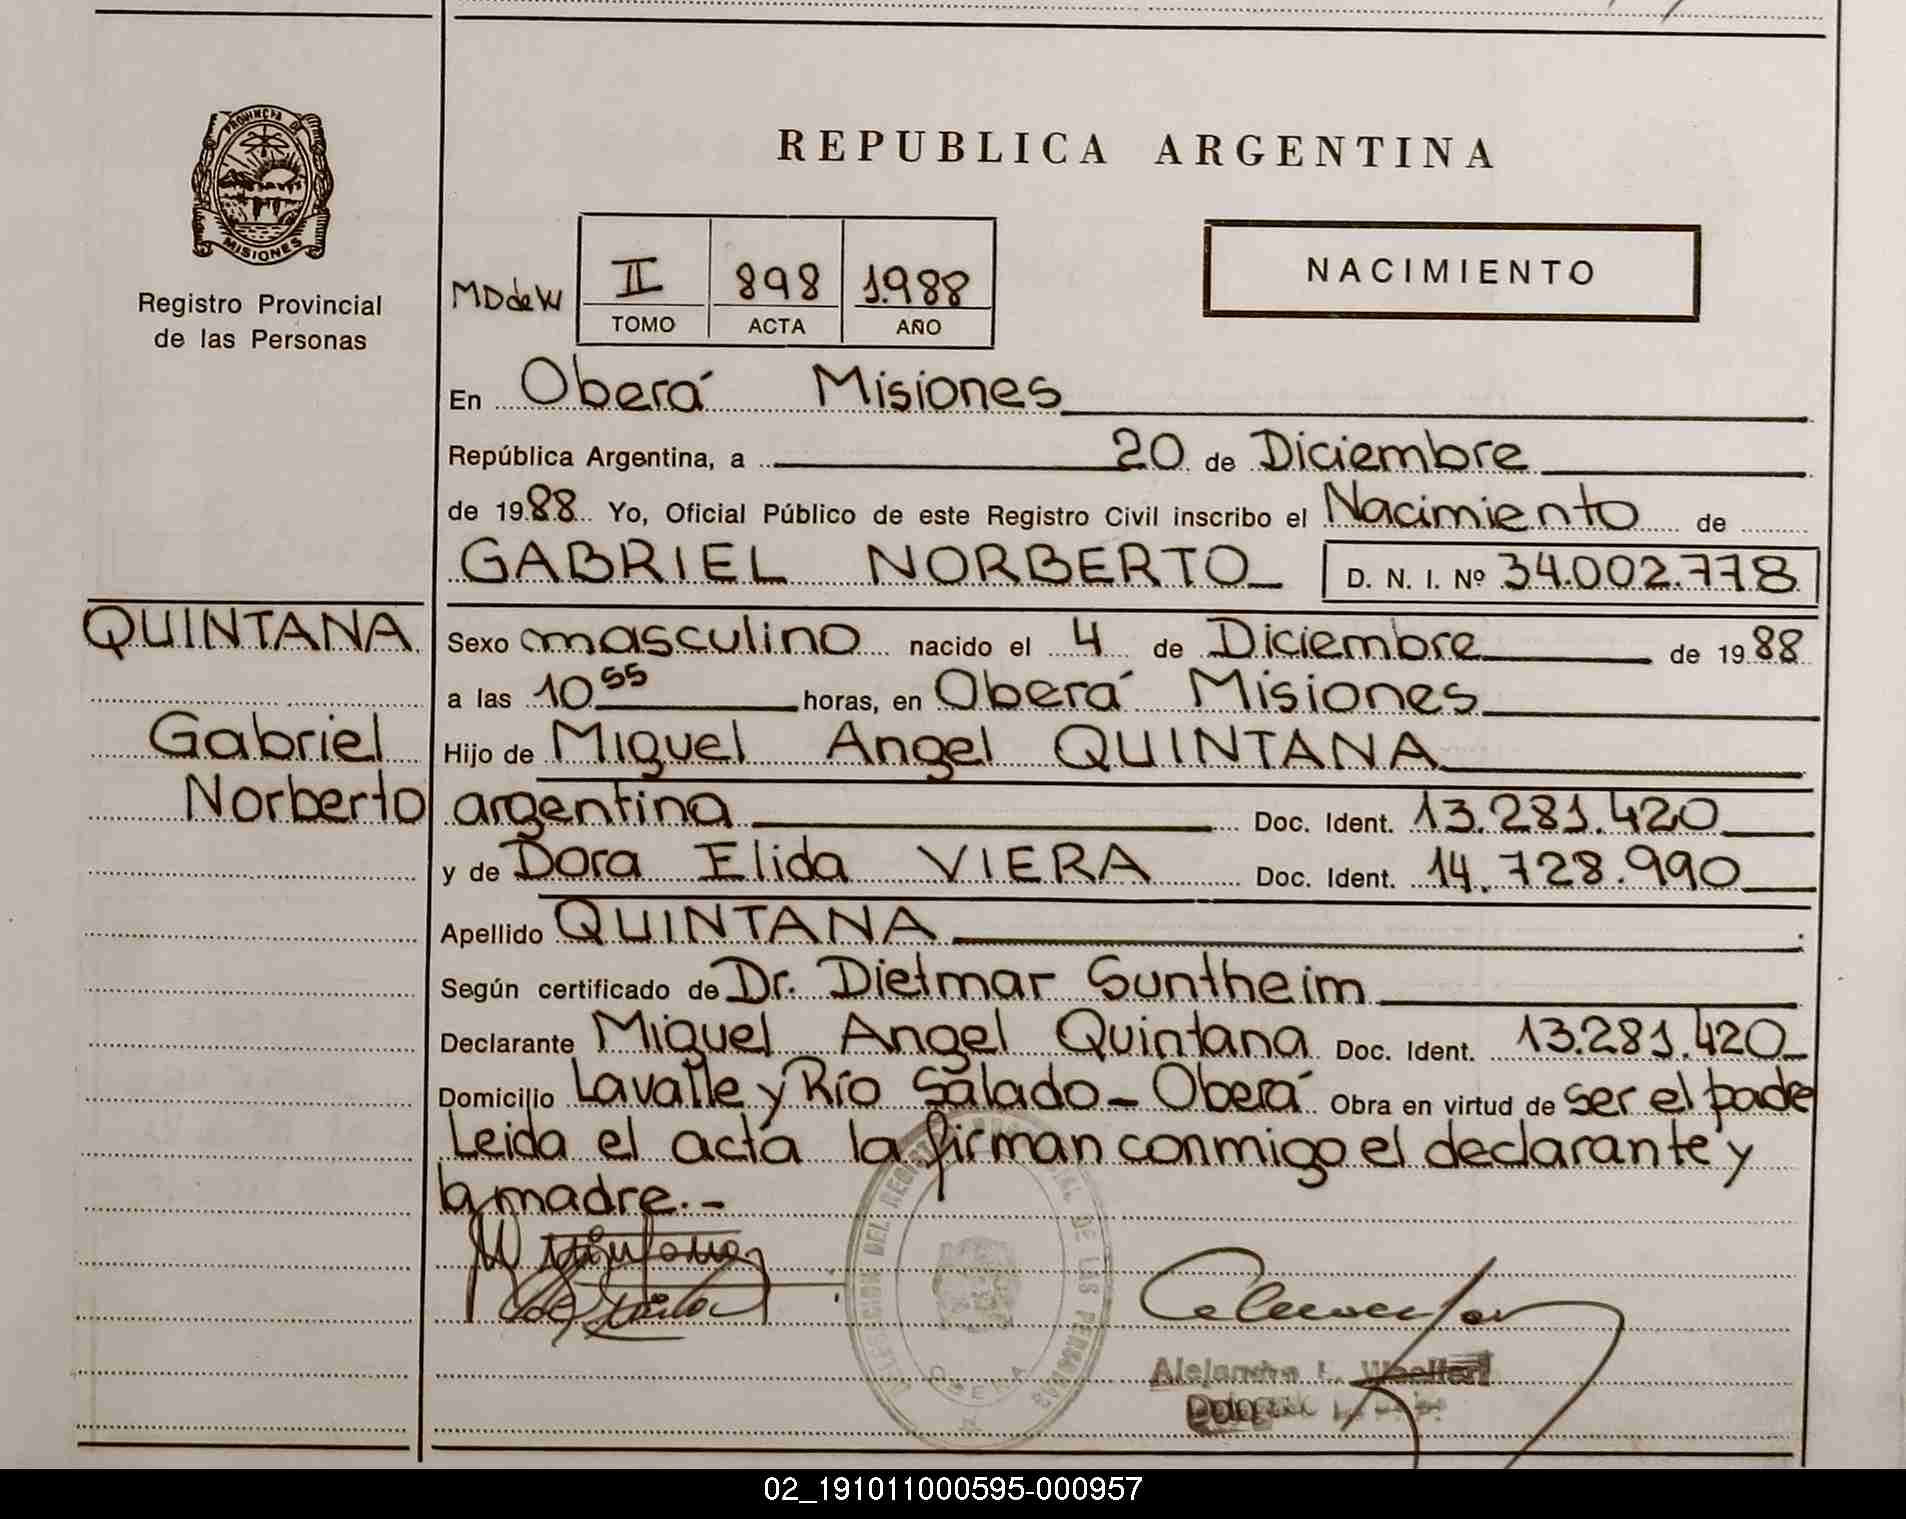 PROVINCIA DE
MISIONES
Registro Provincial
de las Personas
REPUBLICA ARGENTINA
NACIMIENTO
MDdeW
II 898 1.988
TOMO ACTA AÑO
En Oberá Misiones
República Argentina, a 20 de Diciembre
de 1988 Yo, Oficial Público de este Registro Civil inscribo el Nacimiento de
GABRIEL NORBERTO D. N. I. Nº 34.002.778
QUINTANA
Gabriel
Norberto
Sexo masculino nacido el 4 de Diciembre de 1988
a las 10 55 horas, en Oberá Misiones
Hijo de Miguel Angel QUINTANA
argentina Doc. Ident. 13.281.420
y de Dora Elida VIERA Doc. Ident. 14.728.990
Apellido QUINTANA
Según certificado de Dr. Dietmar Suntheim
Declarante Miguel Angel Quintana Doc. Ident. 13.281.420
Domicilio Lavalle y Río Salado - Oberá Obra en virtud de ser el padre
Leida el acta la firman conmigo el declarante y
la madre.-
DELEGACION DEL REGISTRO PROVINCIAL DE LAS PERSONAS
OBERA
02_191011000595-000957